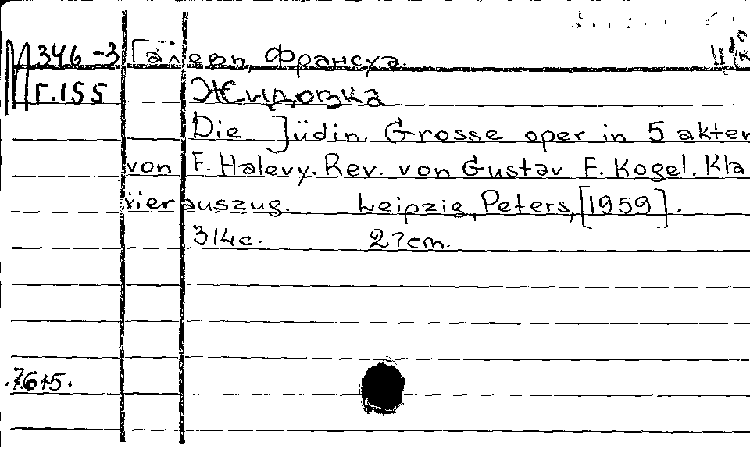 М346-3 Галеви, Франсуа.
Г.155 Жидовка
Die Jüdin. Grosse oper in 5 akten
von F. Halevy. Rev. von Gustav F. Kogel. Kla
vierauszug. Leipzig, Peters, [1959].
314с. 27cm.